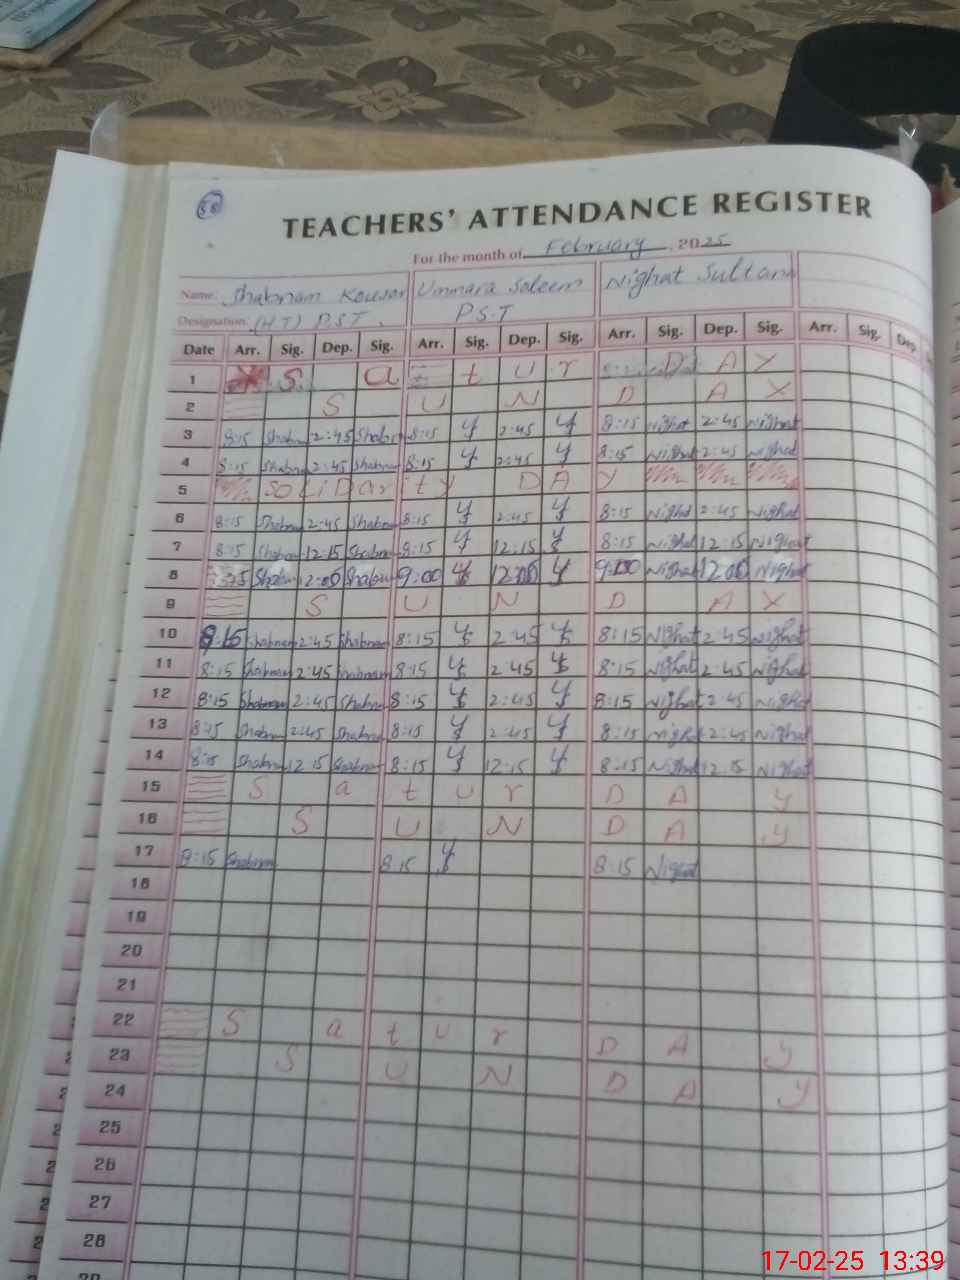 58
TEACHERS' ATTENDANCE REGISTER
For the month of February, 2025
Name: Shabnam Kousar Ummara Saleem Nighat Sultana
Designation: (HT) P.S.T. P.S.T
Date Arr. Sig. Dep. Sig. Arr. Sig. Dep. Sig. Arr. Sig. Dep. Sig. Arr. Sig. Dep.
1 S a t U r D A Y
2 S U N D A Y
3 8:15 Shabnam 2:45 Shabnam 8:15 2:45 8:15 Nighat 2:45 Nighat
4 8:15 Shabnam 2:45 Shabnam 8:15 2:45 8:15 Nighat 2:45 Nighat
5 SOLiDarity DAY
6 8:15 Shabnam 2:45 Shabnam 8:15 2:45 8:15 Nighat 2:45 Nighat
7 8:15 Shabnam 12:15 Shabnam 8:15 12:15 8:15 Nighat 12:15 Nighat
8 Shabnam 12:00 Shabnam 9:00 12:00 9:00 Nighat 12:00 Nighat
9 S U N D A Y
10 8:15 Shabnam 2:45 Shabnam 8:15 2:45 8:15 Nighat 2:45 Nighat
11 8:15 Shabnam 2:45 Shabnam 8:15 2:45 8:15 Nighat 2:45 Nighat
12 8:15 Shabnam 2:45 Shabnam 8:15 2:45 8:15 Nighat 2:45 Nighat
13 8:15 Shabnam 2:45 Shabnam 8:15 2:45 8:15 Nighat 2:45 Nighat
14 8:15 Shabnam 12:15 Shabnam 8:15 12:15 8:15 Nighat 12:15 Nighat
15 S a t U r D A y
16 S U N D A y
17 8:15 Shabnam 8:15 8:15 Nighat
18
19
20
21
22 S a t U r D A y
23 S U N D A y
24
25
26
27
28
29
17-02-25 13:39